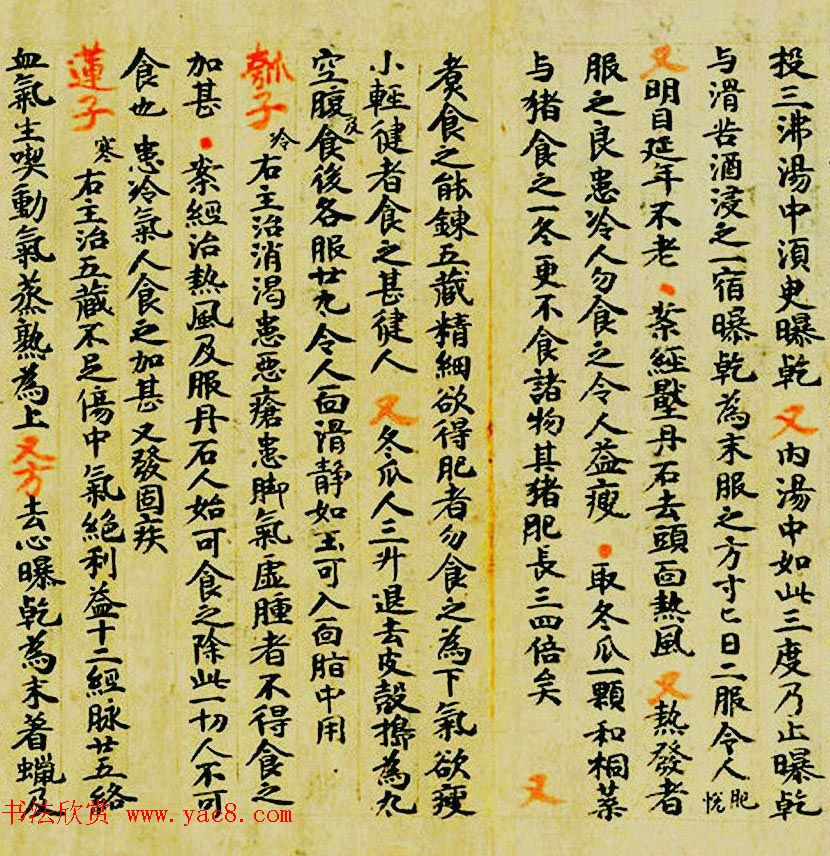 投三沸湯中湏史曝乾 又 内湯中如此三度乃止曝乾
与滑苦酒浸之一宿曝乾為末服之方寸匕日二服令人肥悅
又 明目延年不老 • 案經壓丹石去頭面熱風 又 熱發者
服之良患冷人勿食之令人益瘦 • 取冬瓜一顆和桐葉
与猪食之一冬更不食諸物其猪肥長三四倍矣 又
煮食之能鍊五藏精細欲得肥者勿食之為下氣欲瘦
小輕健者食之甚健人 又 冬瓜人三升退去皮殼擣為丸
空腹及食後各服廿丸令人面滑静如玉可入面脂中用
瓠子 冷 右主治消渴患惡瘡患脚氣虛腫者不得食之
加甚 • 案經治熱風及服丹石人始可食之除此一切人不可
食也 患冷氣人食之加甚又發固疾
蓮子 寒 右主治五藏不足傷中氣絕利益十二經脉廿五絡
血氣生喫動氣蒸熟為上 又方 去心曝乾為末着蠟及
书法欣赏 www.yac8.com